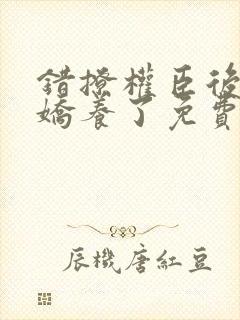 錯撩權臣後
嬌養了免費
辰機唐紅豆